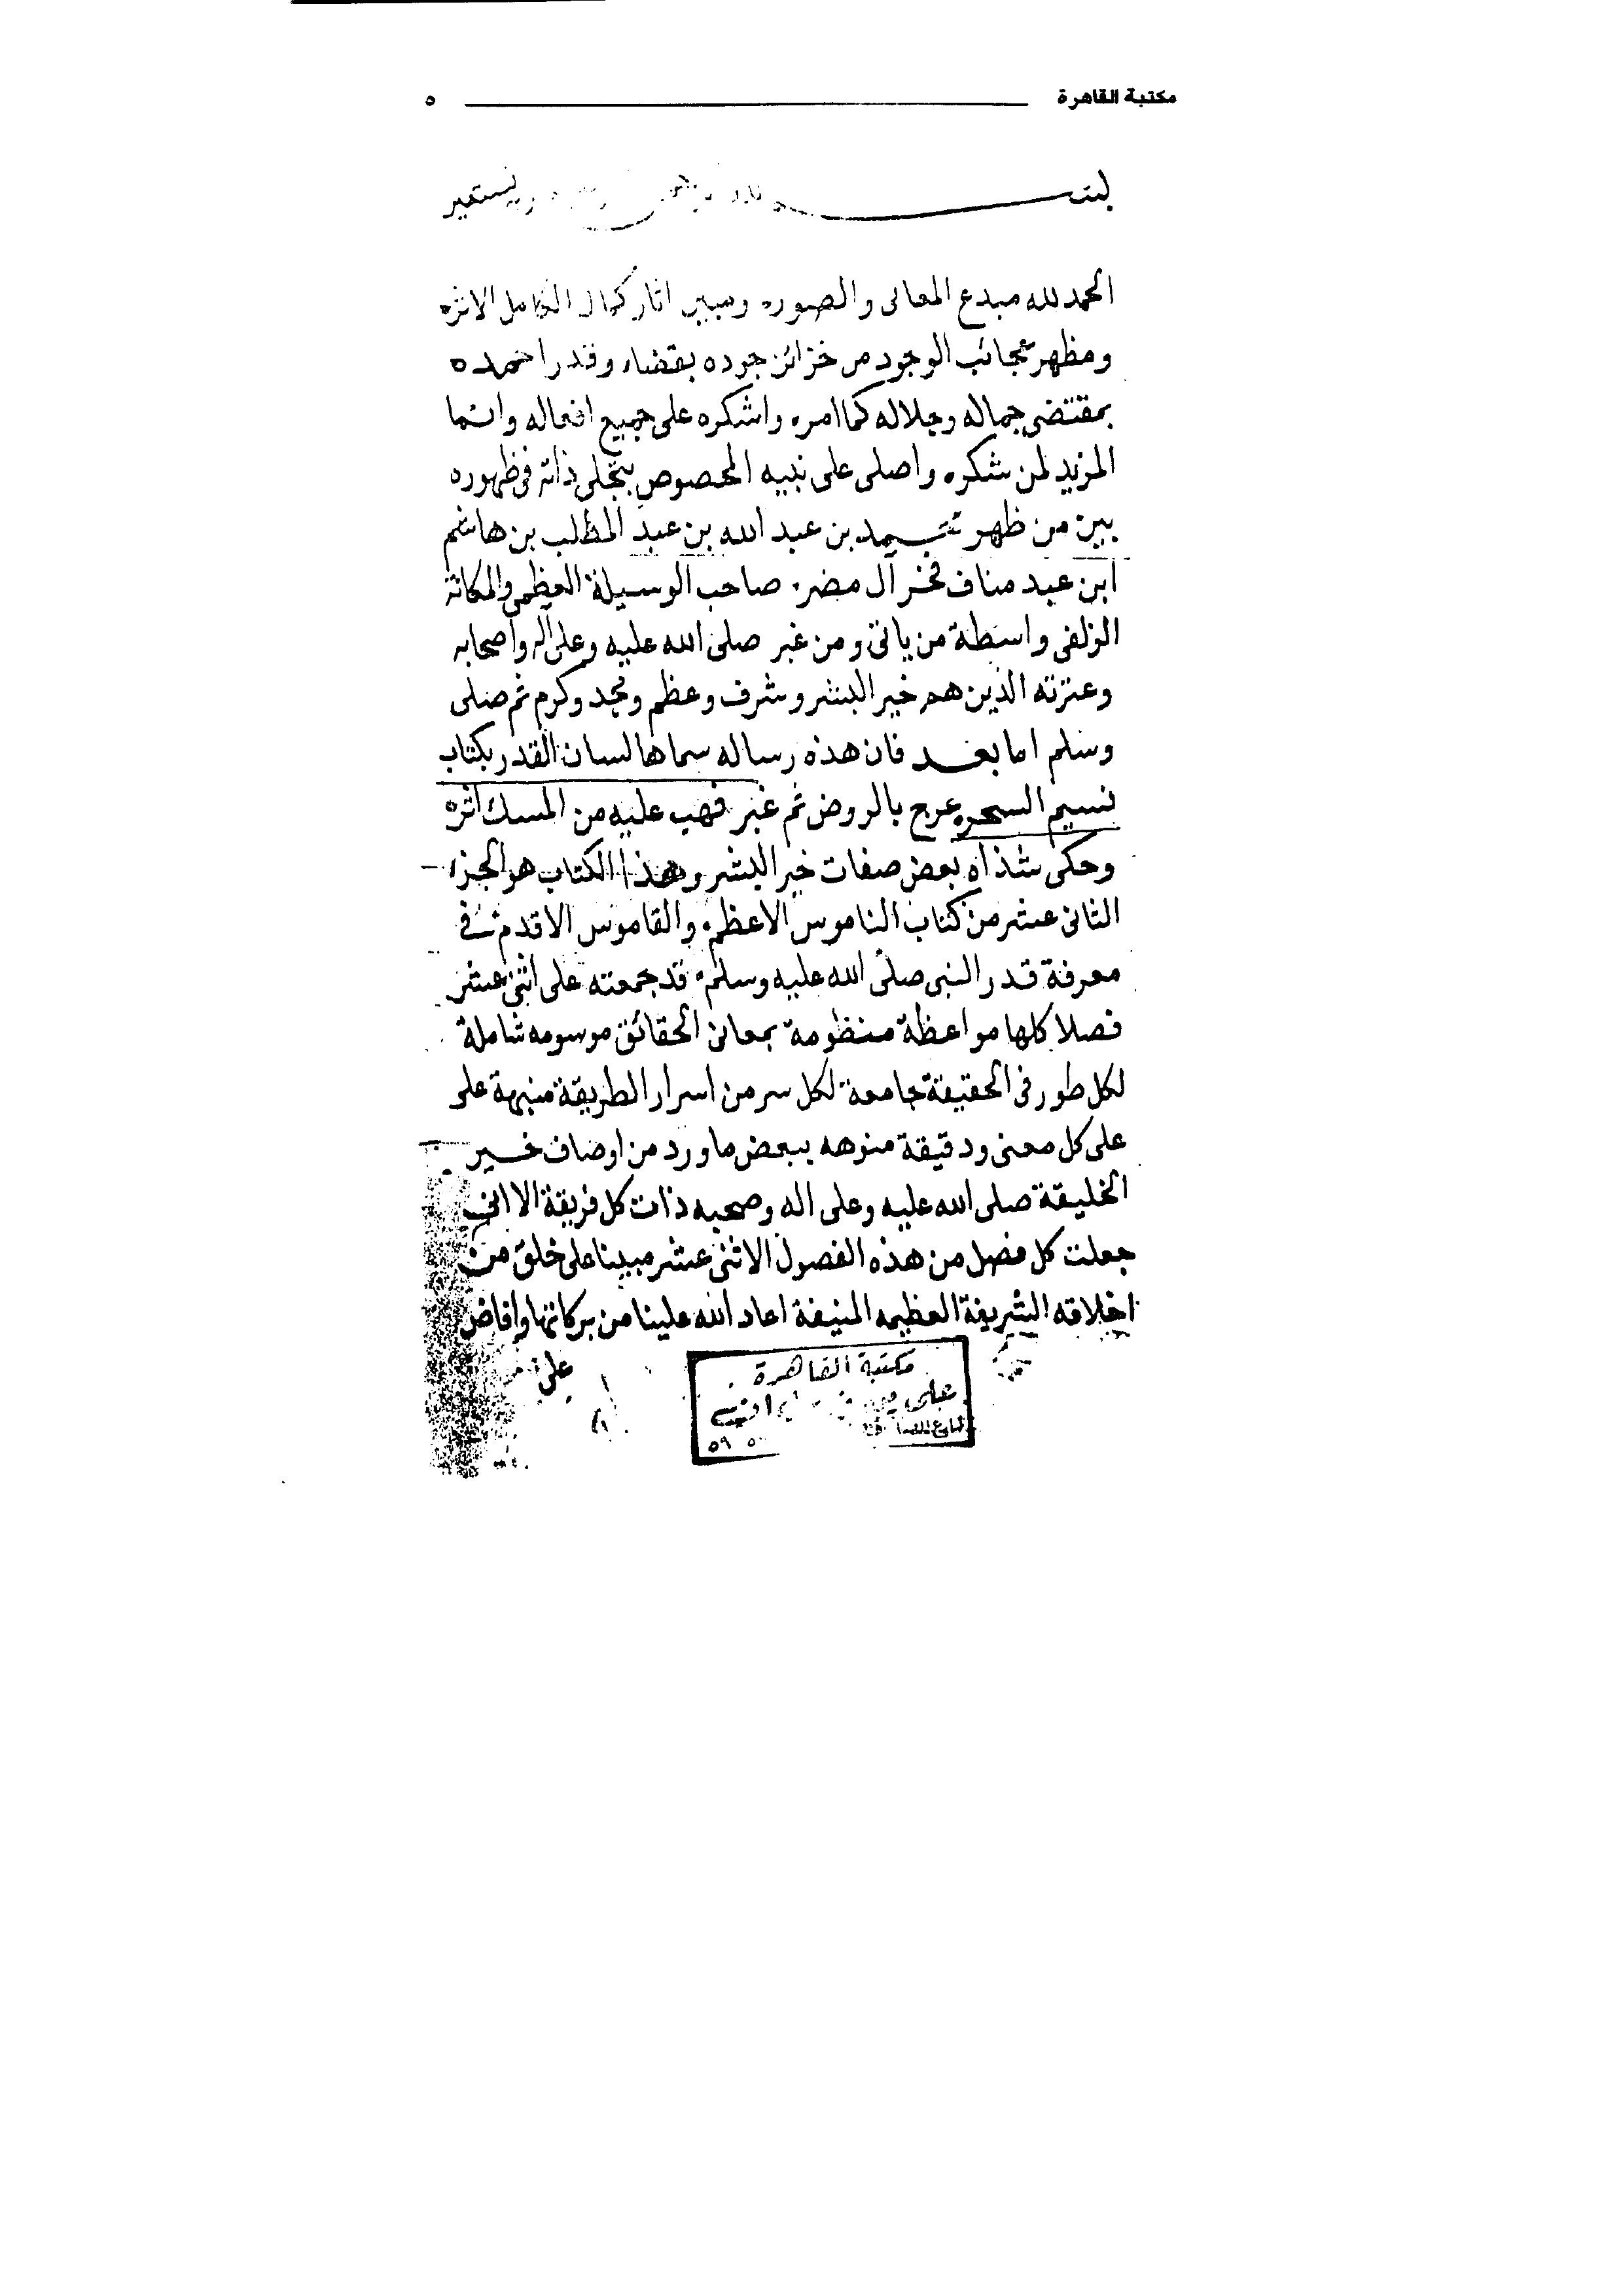 مكتبة القاهرة ٥
نستعين
الحمد لله مبدع المعانى والصور، ومبين اثار كمال الكامل الاثره
ومظهر عجائب الوجود من خزائن جوده بقضاء وقدر احمده
بمقتضى جماله وجلاله كما امره واشكره على جميع افعاله وانما
المزيد لمن شكره واصلى على نبيه المخصوص بتجلى ذاته فى ظهوره
بين من ظهر محمد بن عبد الله بن عبد المطلب بن هاشم
ابن عبد مناف فخر آل مضر، صاحب الوسيلة العظمى والمكانة
الزلفى واسطة من ياتى ومن غبر صلى الله عليه وعلى اله واصحابه
وعترته الذين هم خير البشر وشرف وعظم ومجد وكرم ثم صلى
وسلم اما بعد فان هذه رساله سماها لسان القدر بكتاب
نسيم السحره عرج بالروض ثم غبر فهب عليه من المسك اثره
وحكى شذاه بعض صفات خير البشر وهذا الكتاب هو الجزء
الثانى عشر من كتاب الناموس الاعظم، والقاموس الاقدم فى
معرفة قدر النبى صلى الله عليه وسلم، قد جمعته على اثنى عشر
فصلا كلها مواعظة منظومة بمعانى الحقائق موسومه شاملة
لكل طور فى الحقيقة جامعة لكل سر من اسرار الطريقة منبهة على
على كل معنى ودقيقة منوهه ببعض ما ورد من اوصاف خير
الخليقة صلى الله عليه وعلى اله وصحبه ذات كل فريقة الا انى
جعلت كل فصل من هذه الفصول الاثنى عشر مبينا على خلق من
اخلاقه الشريفة العظيمه المنيفة اعاد الله علينا من بركاتها وافاض
على
مكتبة القاهرة
على